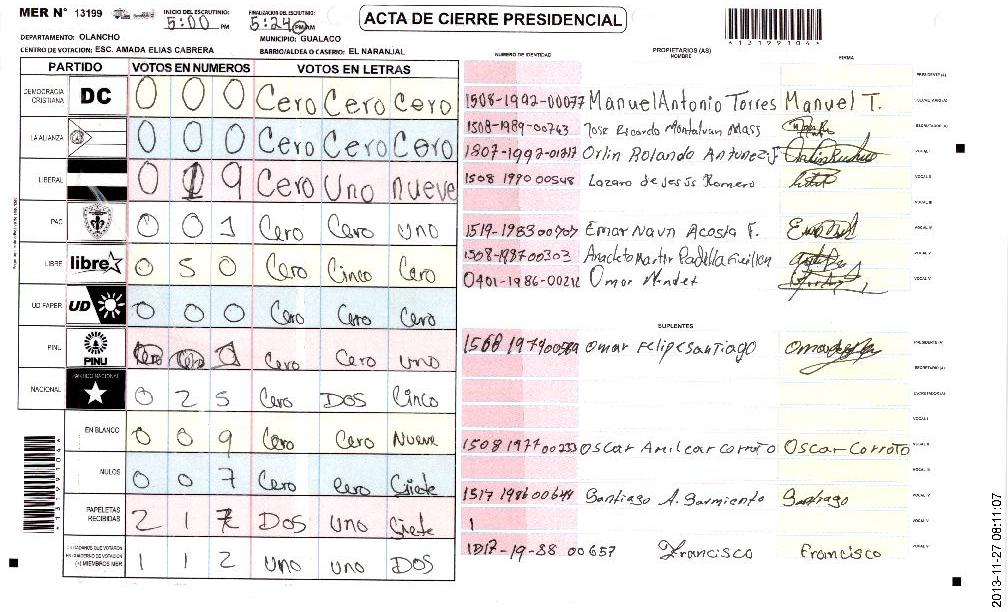 MER N° 13199
INICIO DEL ESCRUTINIO: 5:00 PM
FINALIZACION DEL ESCRUTINIO: 5:24 PM AM
ACTA DE CIERRE PRESIDENCIAL
*13199104*
DEPARTAMENTO: OLANCHO
MUNICIPIO: GUALACO
CENTRO DE VOTACION: ESC. AMADA ELIAS CABRERA
BARRIO/ALDEA O CASERIO: EL NARANJAL
NUMERO DE IDENTIDAD
PROPIETARIOS (AS)
NOMBRE
FIRMA
PARTIDO VOTOS EN NUMEROS VOTOS EN LETRAS
PRESIDENTE (A)
DEMOCRACIA CRISTIANA DC 0 0 0 Cero Cero Cero
1508-1992-00077 Manuel Antonio Torres Manuel T.
LA ALIANZA 0 0 0 Cero Cero Cero
1508-1989-00743 Jose Ricardo Montalvan Mass
SECRETARIO (A)
Orlin Rolando Antunez
VOCAL I
LIBERAL 0 1 9 Cero Uno nueve
1508 1990 00548 Lazaro de Jesús Romero
VOCAL II
VOCAL III
PAC 0 0 1 Cero Cero uno
Acosta F.
VOCAL IV
LIBRE libre 0 5 0 Cero Cinco Cero
1508-1987-00303
VOCAL V
0401-1986-00212 Omar Mendez
UD FAPER UD 0 0 0 Cero Cero Cero
SUPLENTES
PINU PINU 1 Cero Cero uno
Omar Felipe Santiago
PRESIDENTE (A)
SECRETARIO (A)
NACIONAL PARTIDO NACIONAL 0 2 5 Cero DOS Cinco
ESCRUTADOR (A)
VOCAL I
EN BLANCO 0 0 9 Cero Cero Nueve
1508 1977 00233 Oscar Amilcar corroto Oscar Corroto
VOCAL II
VOCAL III
NULOS 0 0 7 Cero cero Siete
1517 1986 00648 Santiago A. Sarmiento Santiago
VOCAL IV
PAPELETAS RECIBIDAS 2 1 7 DOS uno Siete
1
VOCAL V
CIUDADANOS QUE VOTARON EN CUADERNO DE VOTACION (+) MIEMBROS MER 1 1 2 uno uno DOS
1517-19-88 00657 Francisco Francisco
*13199104*
2013-11-27 08:11:07